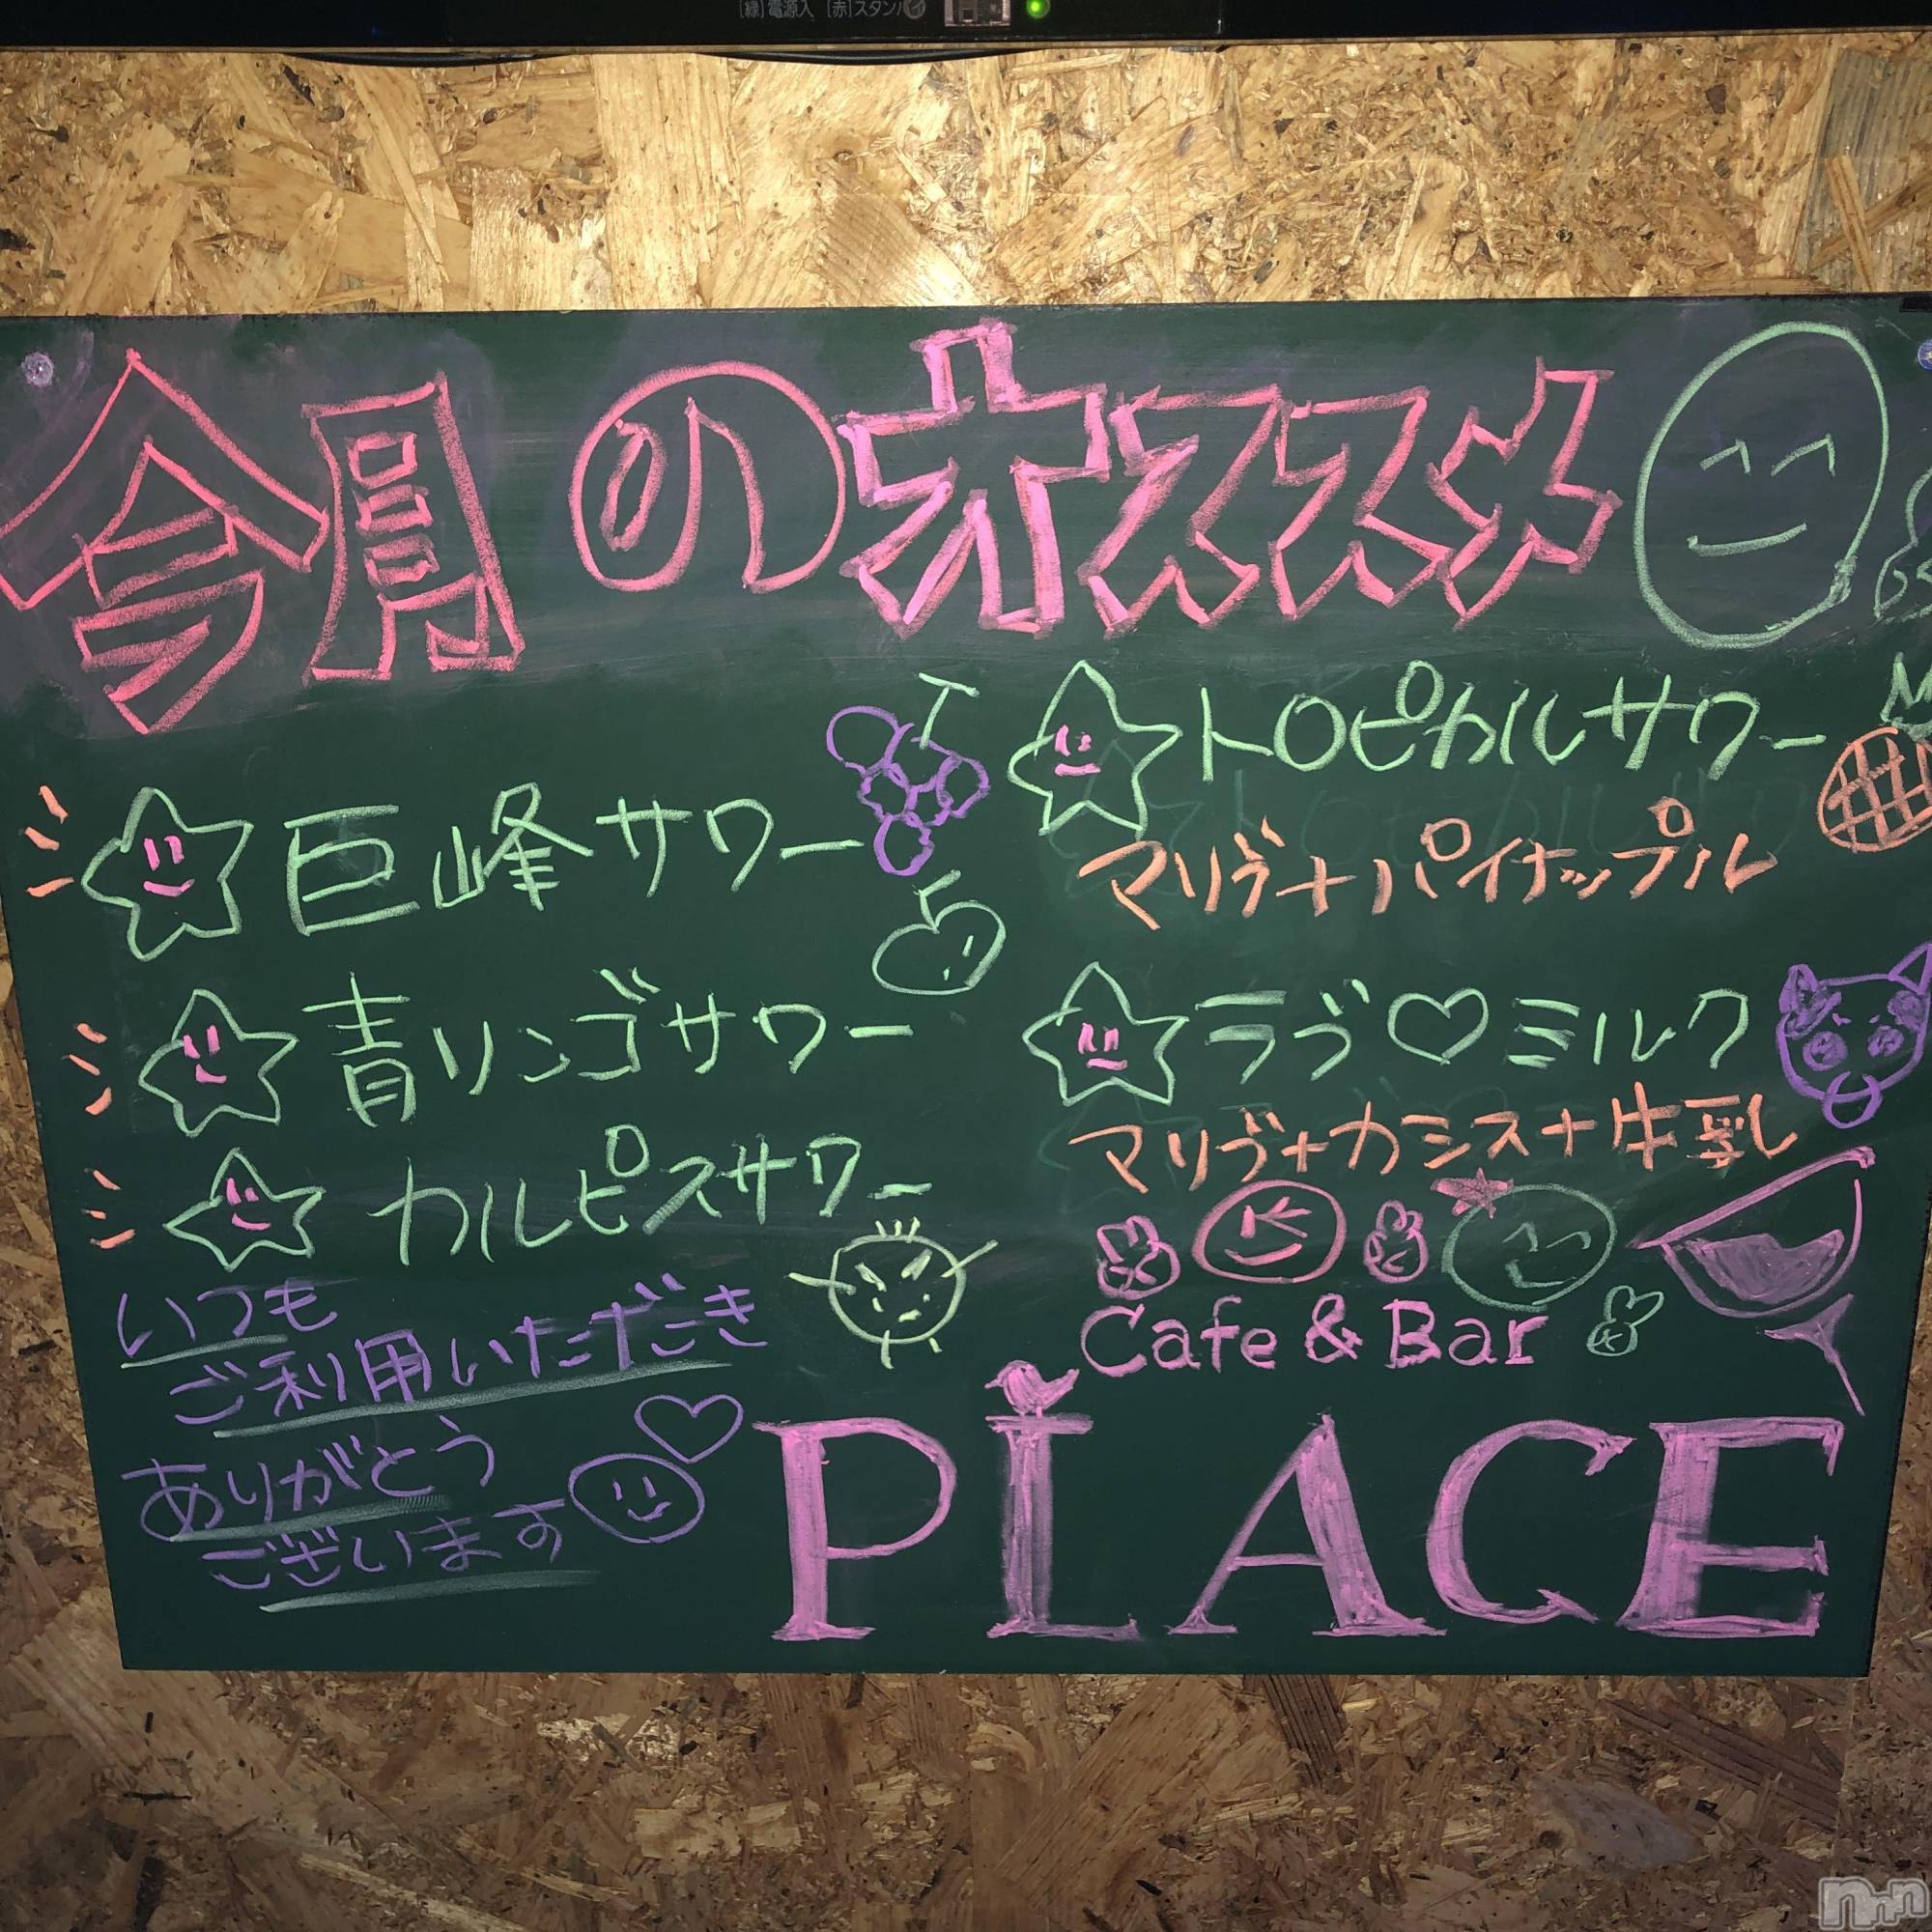 [緑]電源入 [赤]スタンバイ
今月のオススメ
巨峰サワー
青リンゴサワー
カルピスサワー
いつも
ご利用いただき
ありがとう
ございます
トロピカルサワー
マリブ+パイナップル
ラブ♡ミルク
マリブ+カシス+牛乳
Cafe & Bar
PLACE